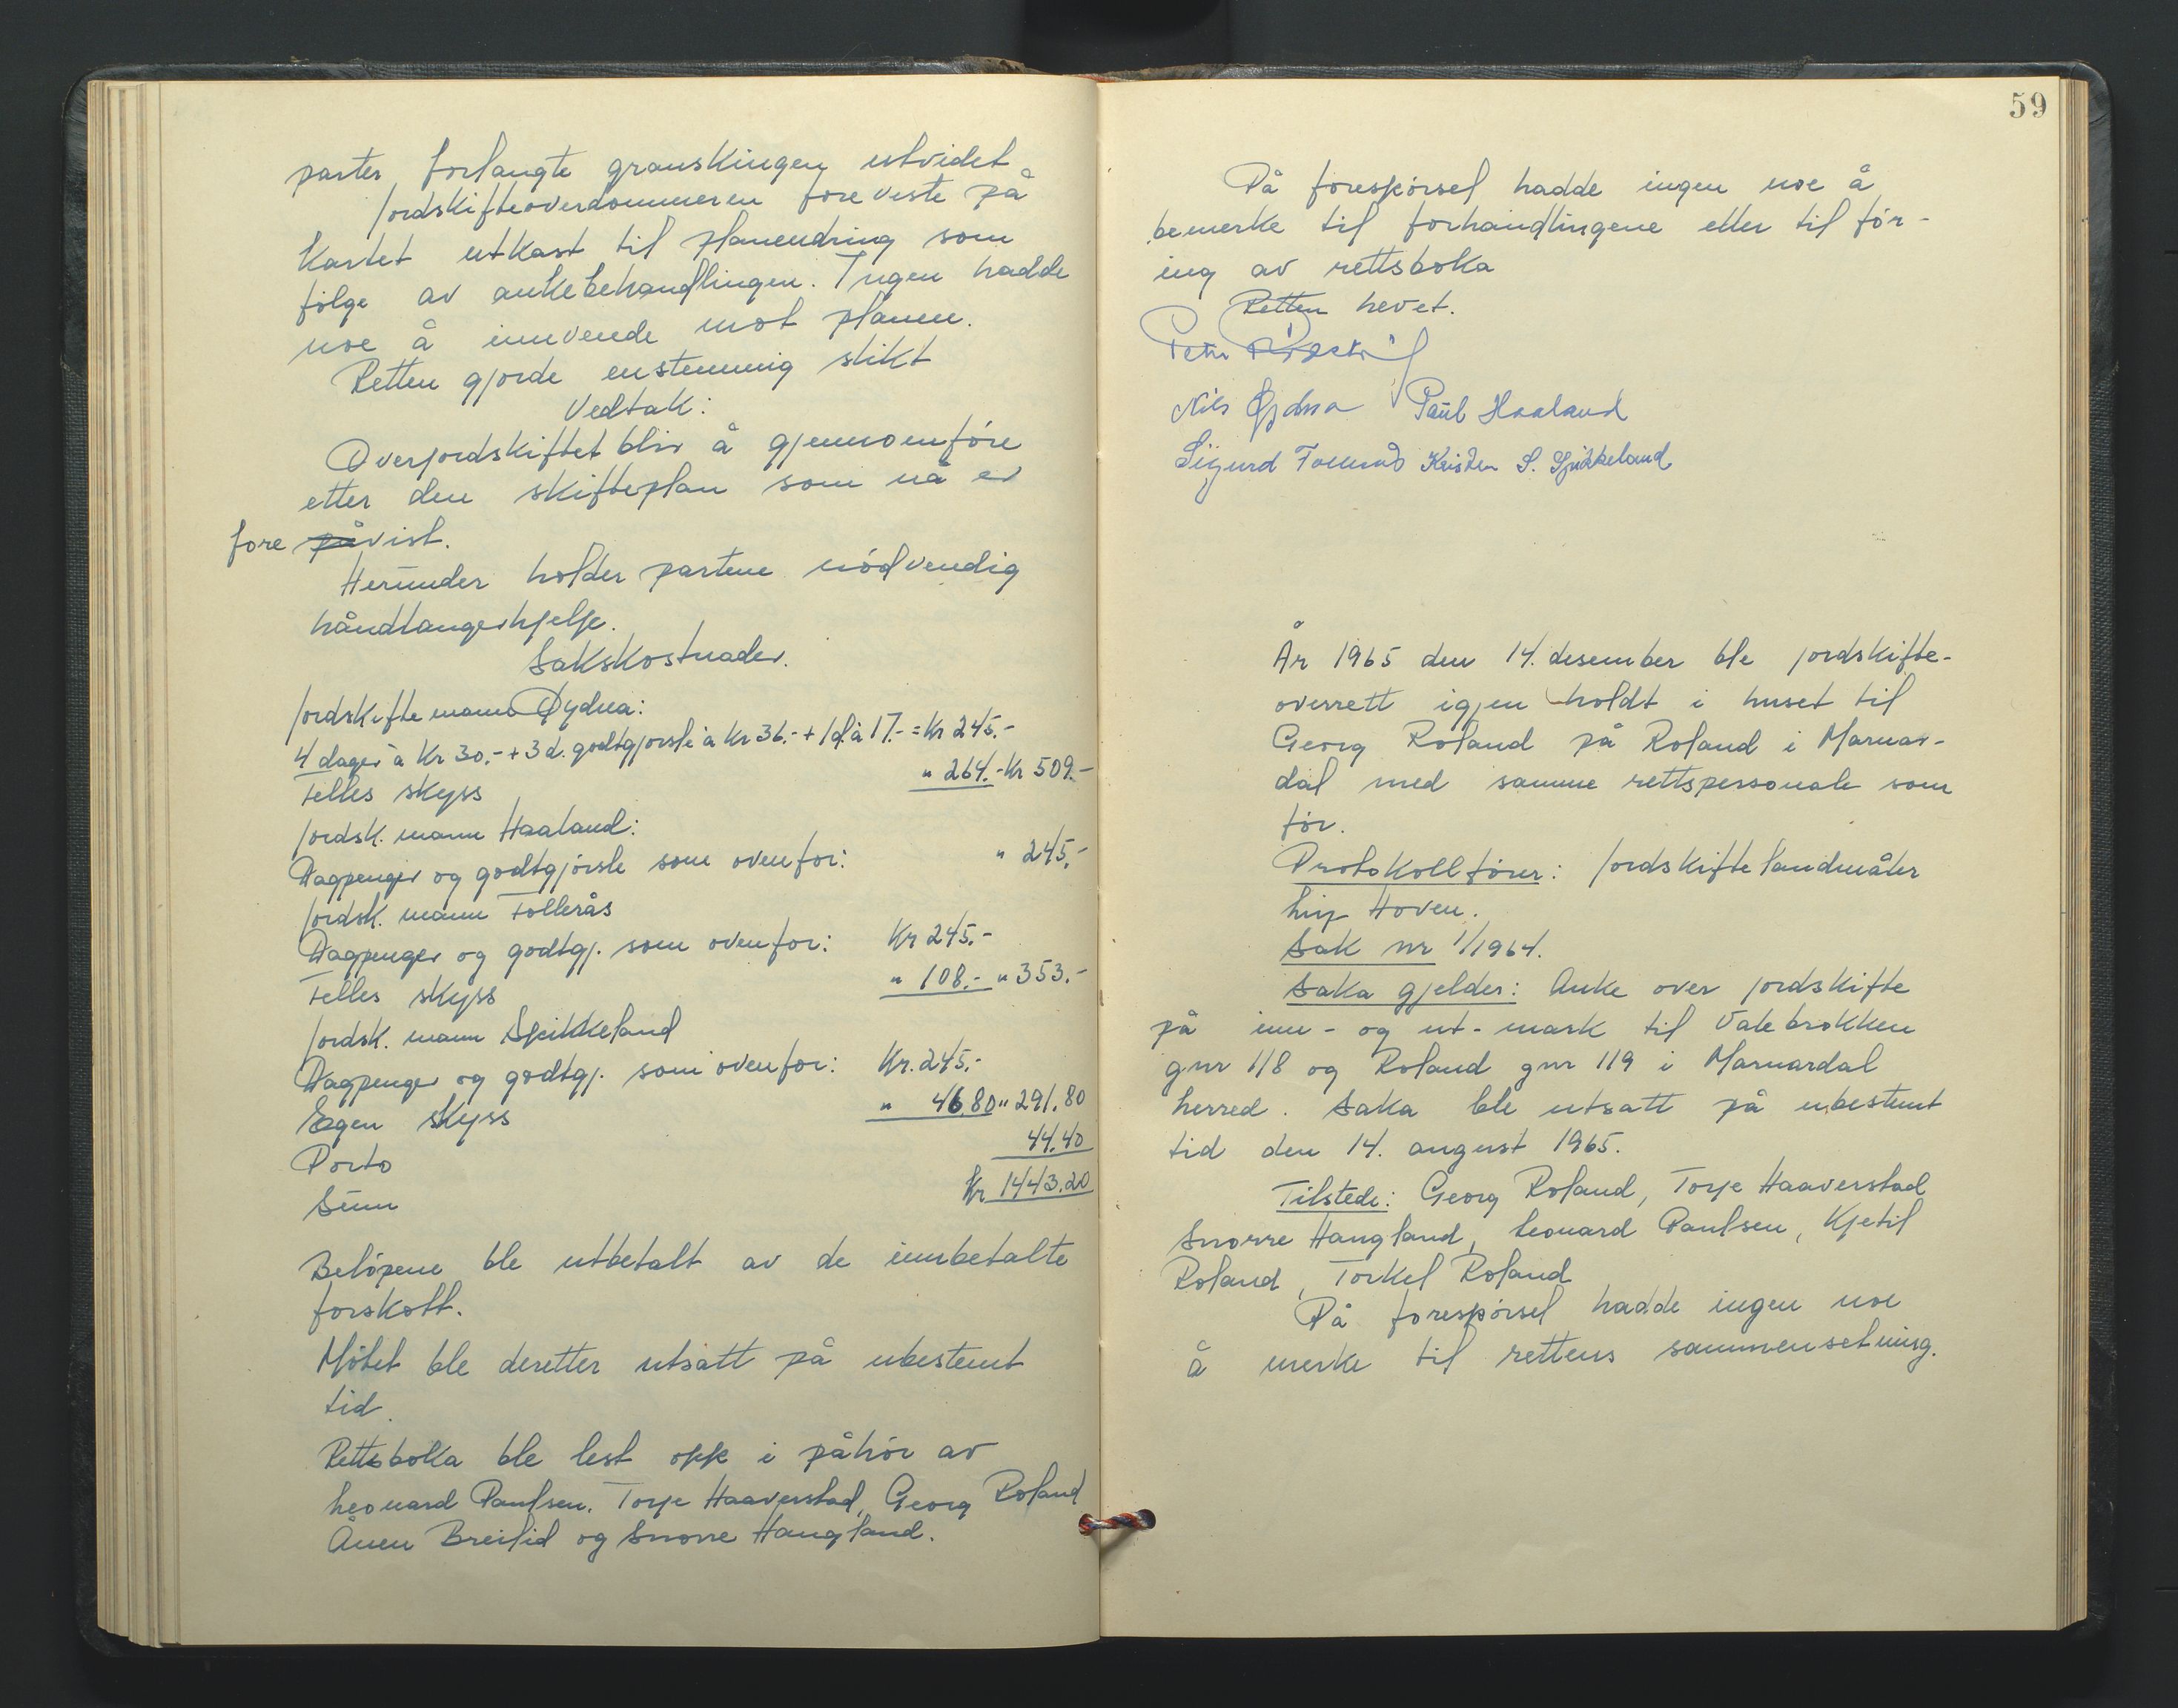 parter forlangte granskingen utvidet
Jordskifteoverdommeren foreviste på
kartet utkast til planendring som
følge av ankebehandlingen. Ingen hadde
noe å innvende mot planen.
Retten gjorde enstemmig slikt
Vedtak:
Overjordskiftet blir å gjennomføre
etter den skifteplan som nå er
fore påvist.
Herunder holder partene nødvendig
håndlangerhjelp.
Sakskostnader.
Jordskiftemann Øydna:
4 dager à kr 30.- + 3 d. godtgjørsle à kr 36.- + 1 d. à 17.- = kr 245.-
Felles skyss " 264.- kr 509.-
Jordsk. mann Haaland:
Dagpenger og godtgjørsle som ovenfor: " 245.-
Jordsk. mann Follerås
Dagpenger og godtgj. som ovenfor: kr 245.-
Felles skyss " 108.- " 353.-
Jordsk. mann Spikkeland
Dagpenger og godtgj. som ovenfor: Kr. 245.-
Egen skyss " 46.80 " 291.80
Porto 44.40
Sum Kr 1443.20
Beløpene ble utbetalt av de innbetalte
forskott.
Møtet ble deretter utsatt på ubestemt
tid.
Rettsboka ble lest opp i påhør av
Leonard Paulsen. Torje Haaverstad, Georg Roland
Ånen Breilid og Snorre Haugland.
59
På forespørsel hadde ingen noe å
bemerke til forhandlingene eller til før-
ing av rettsboka
Retten hevet.
Petter
Nils Øydna Paul Haaland
Sigurd Follerås Kristen S. Spikkeland
År 1965 den 14. desember ble jordskifte-
overrett igjen holdt i huset til
Georg Roland på Roland i Marnar-
dal med samme rettspersonale som
før.
Protokollfører: Jordskiftelandmåler
Liv Hoven.
Sak nr 1/1964.
Saka gjelder: Anke over jordskifte
på inn- og ut-mark til Valebrokken
gnr 118 og Roland gnr 119 i Marnardal
herred. Saka ble utsatt på ubestemt
tid den 14. august 1965.
Tilstede: Georg Roland, Torje Haaverstad
Snorre Haugland, Leonard Paulsen, Kjetil
Roland, Torkel Roland
På forespørsel hadde ingen noe
å merke til rettens sammensetning.